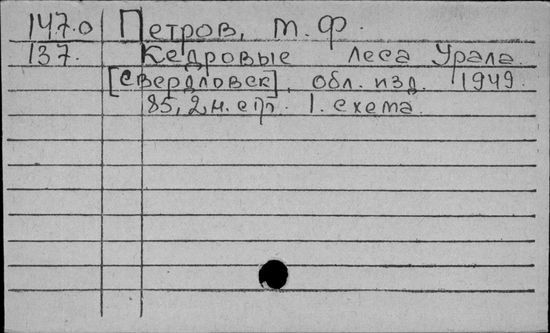 147.0 Петров, М. Ф.
137. Кедровые леса Урала
[Свердловск], обл. изд. 1949.
85, 2 н. стр. 1. схема